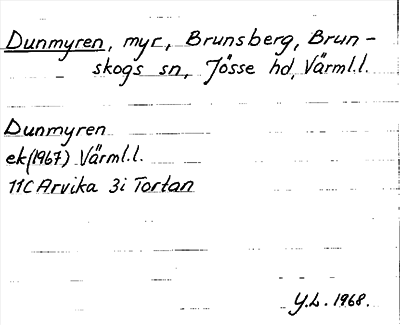 Dunmyren, myr, Brunsberg, Brun-
skogs sn, Jösse hd, Värml.l.
Dunmyren
ek(1967) Värml.l.
11C Arvika 3i Tortan
Y.L. 1968.